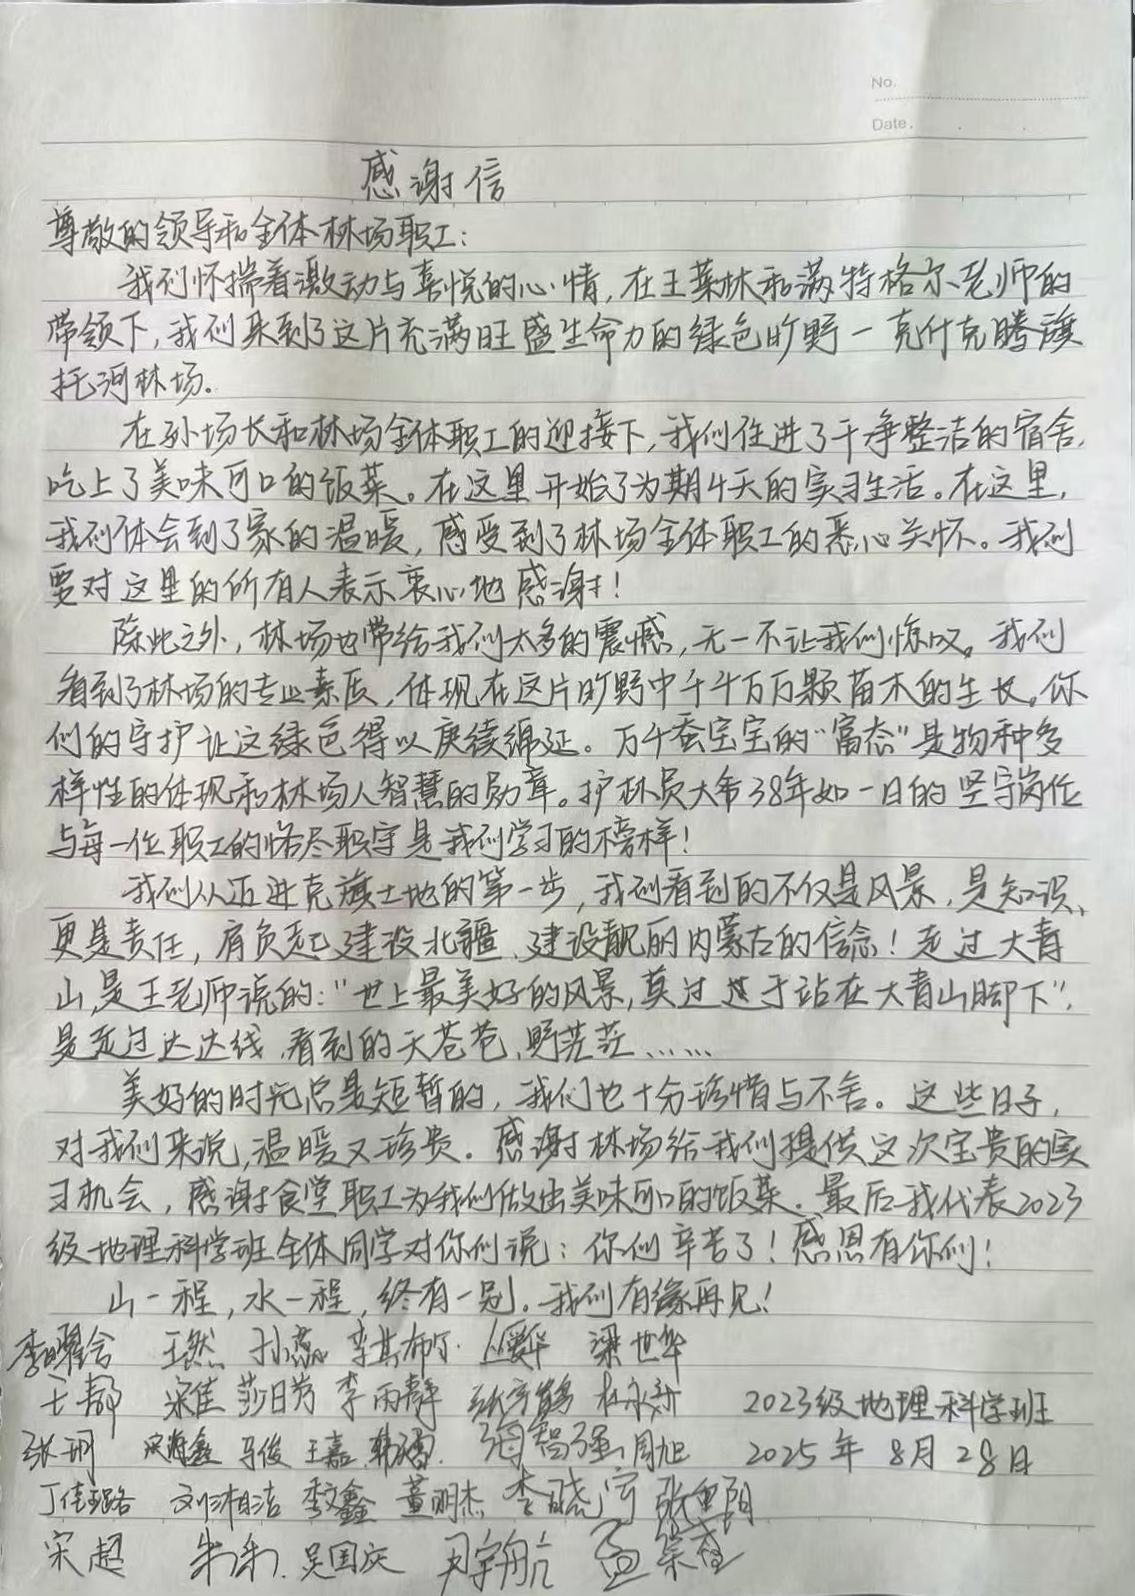 No.
Date.
感谢信
尊敬的领导和全体林场职工：
我们怀揣着激动与喜悦的心情，在王荣林和满特格尔老师的
带领下，我们来到了这片充满旺盛生命力的绿色旷野一克什克腾旗
托河林场。
在孙场长和林场全体职工的迎接下，我们住进了干净整洁的宿舍，
吃上了美味可口的饭菜。在这里开始了为期4天的实习生活。在这里，
我们体会到了家的温暖，感受到了林场全体职工的悉心关怀。我们
要对这里的所有人表示衷心地感谢！
除此之外，林场也带给我们太多的震撼，无一不让我们惊叹。我们
看到了林场的专业素质，体现在这片旷野中千千万万颗苗木的生长。你
们的守护让这绿色得以赓续绵延。万千蚕宝宝的“富态”是物种多
样性的体现和林场人智慧的勋章。护林员大爷38年如一日的坚守岗位
与每一位职工的恪尽职守是我们学习的榜样！
我们从迈进克旗土地的第一步，我们看到的不仅是风景，是知识、
更是责任，肩负起建设北疆、建设靓丽内蒙古的信念！走过大青
山，是王老师说的：“世上最美好的风景，莫过于站在大青山脚下”，
是走过达达线，看到的天苍苍，野茫茫……
美好的时光总是短暂的，我们也十分珍惜与不舍。这些日子，
对我们来说，温暖又珍贵。感谢林场给我们提供这次宝贵的实
习机会，感谢食堂职工为我们做出美味可口的饭菜。最后我代表2023
级地理科学班全体同学对你们说：你们辛苦了！感恩有你们！
山一程，水一程，终有一别。我们有缘再见！
王然 孙蕊 李其布尔 梁世华
王都 宋佳 莎日芳 李雨静 杜永新 2023级地理科学班
张玥 马俊 王嘉 韩璐 海智强 周旭 2025年8月28日
丁佳璐 刘湘洁 李文鑫 董明杰 李晓宇
宋超 朱利 吴国庆 尹宇航